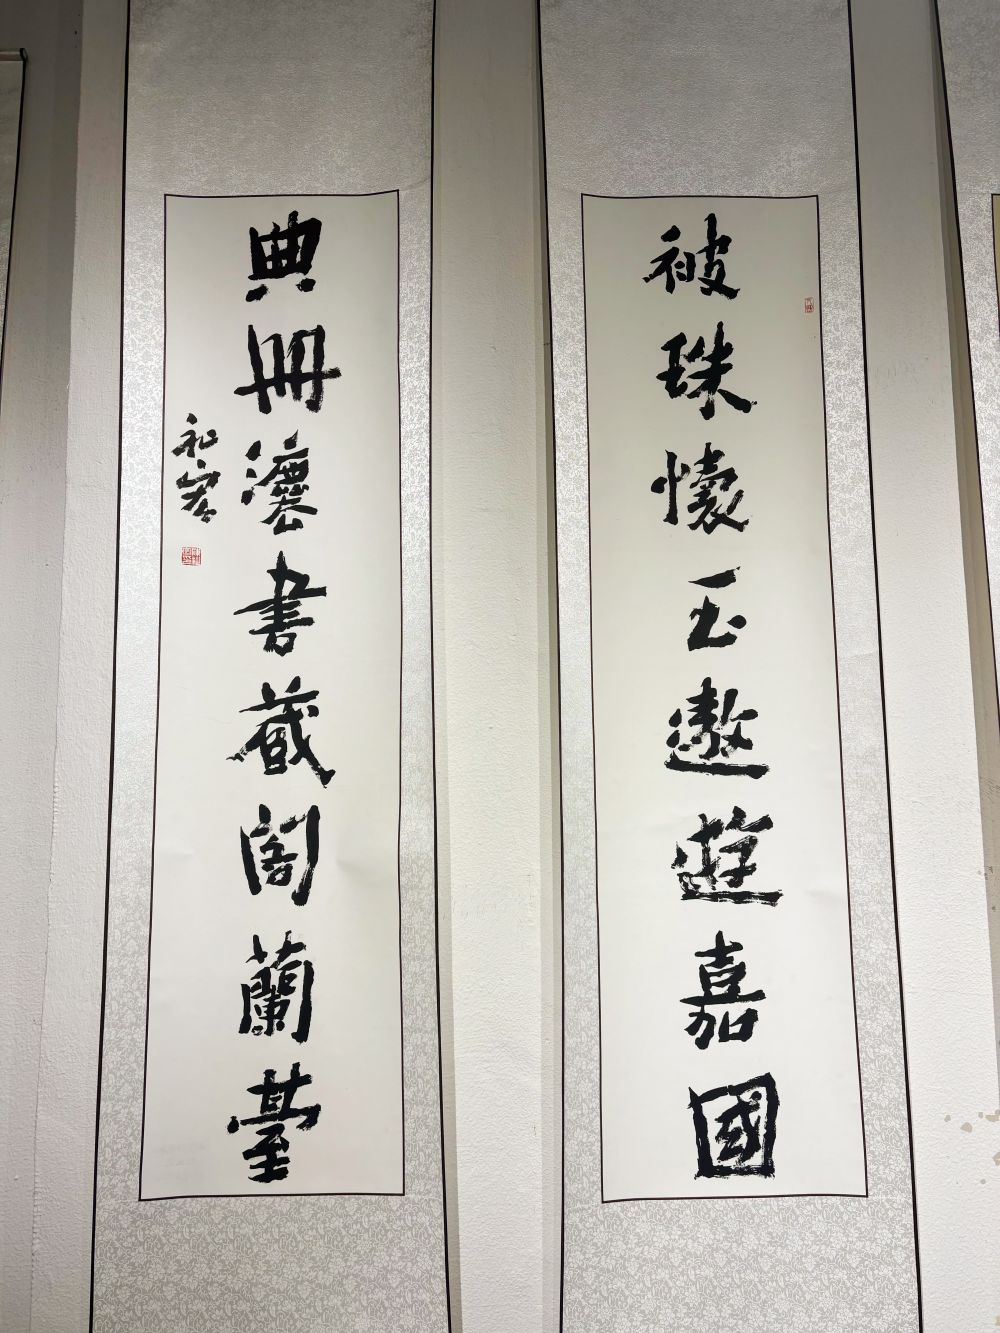 被珠懷玉遨遊嘉國
典冊瀼書藏閣蘭臺